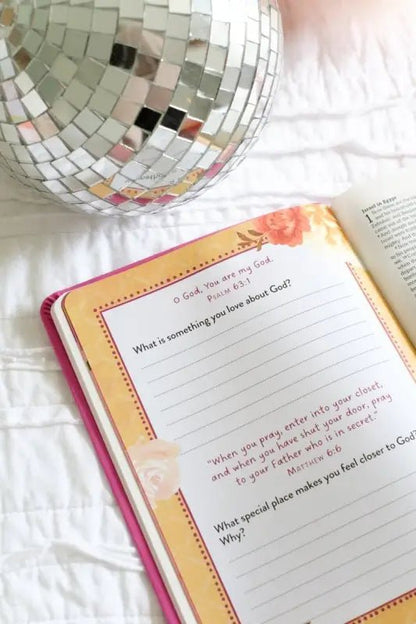 O God, You are my God.
Psalm 63:1
What is something you love about God?
"When you pray, enter into your closet,
and when you have shut your door, pray
to your Father who is in secret."
Matthew 6:6
What special place makes you feel closer to God?
Why?
Israel in Egypt